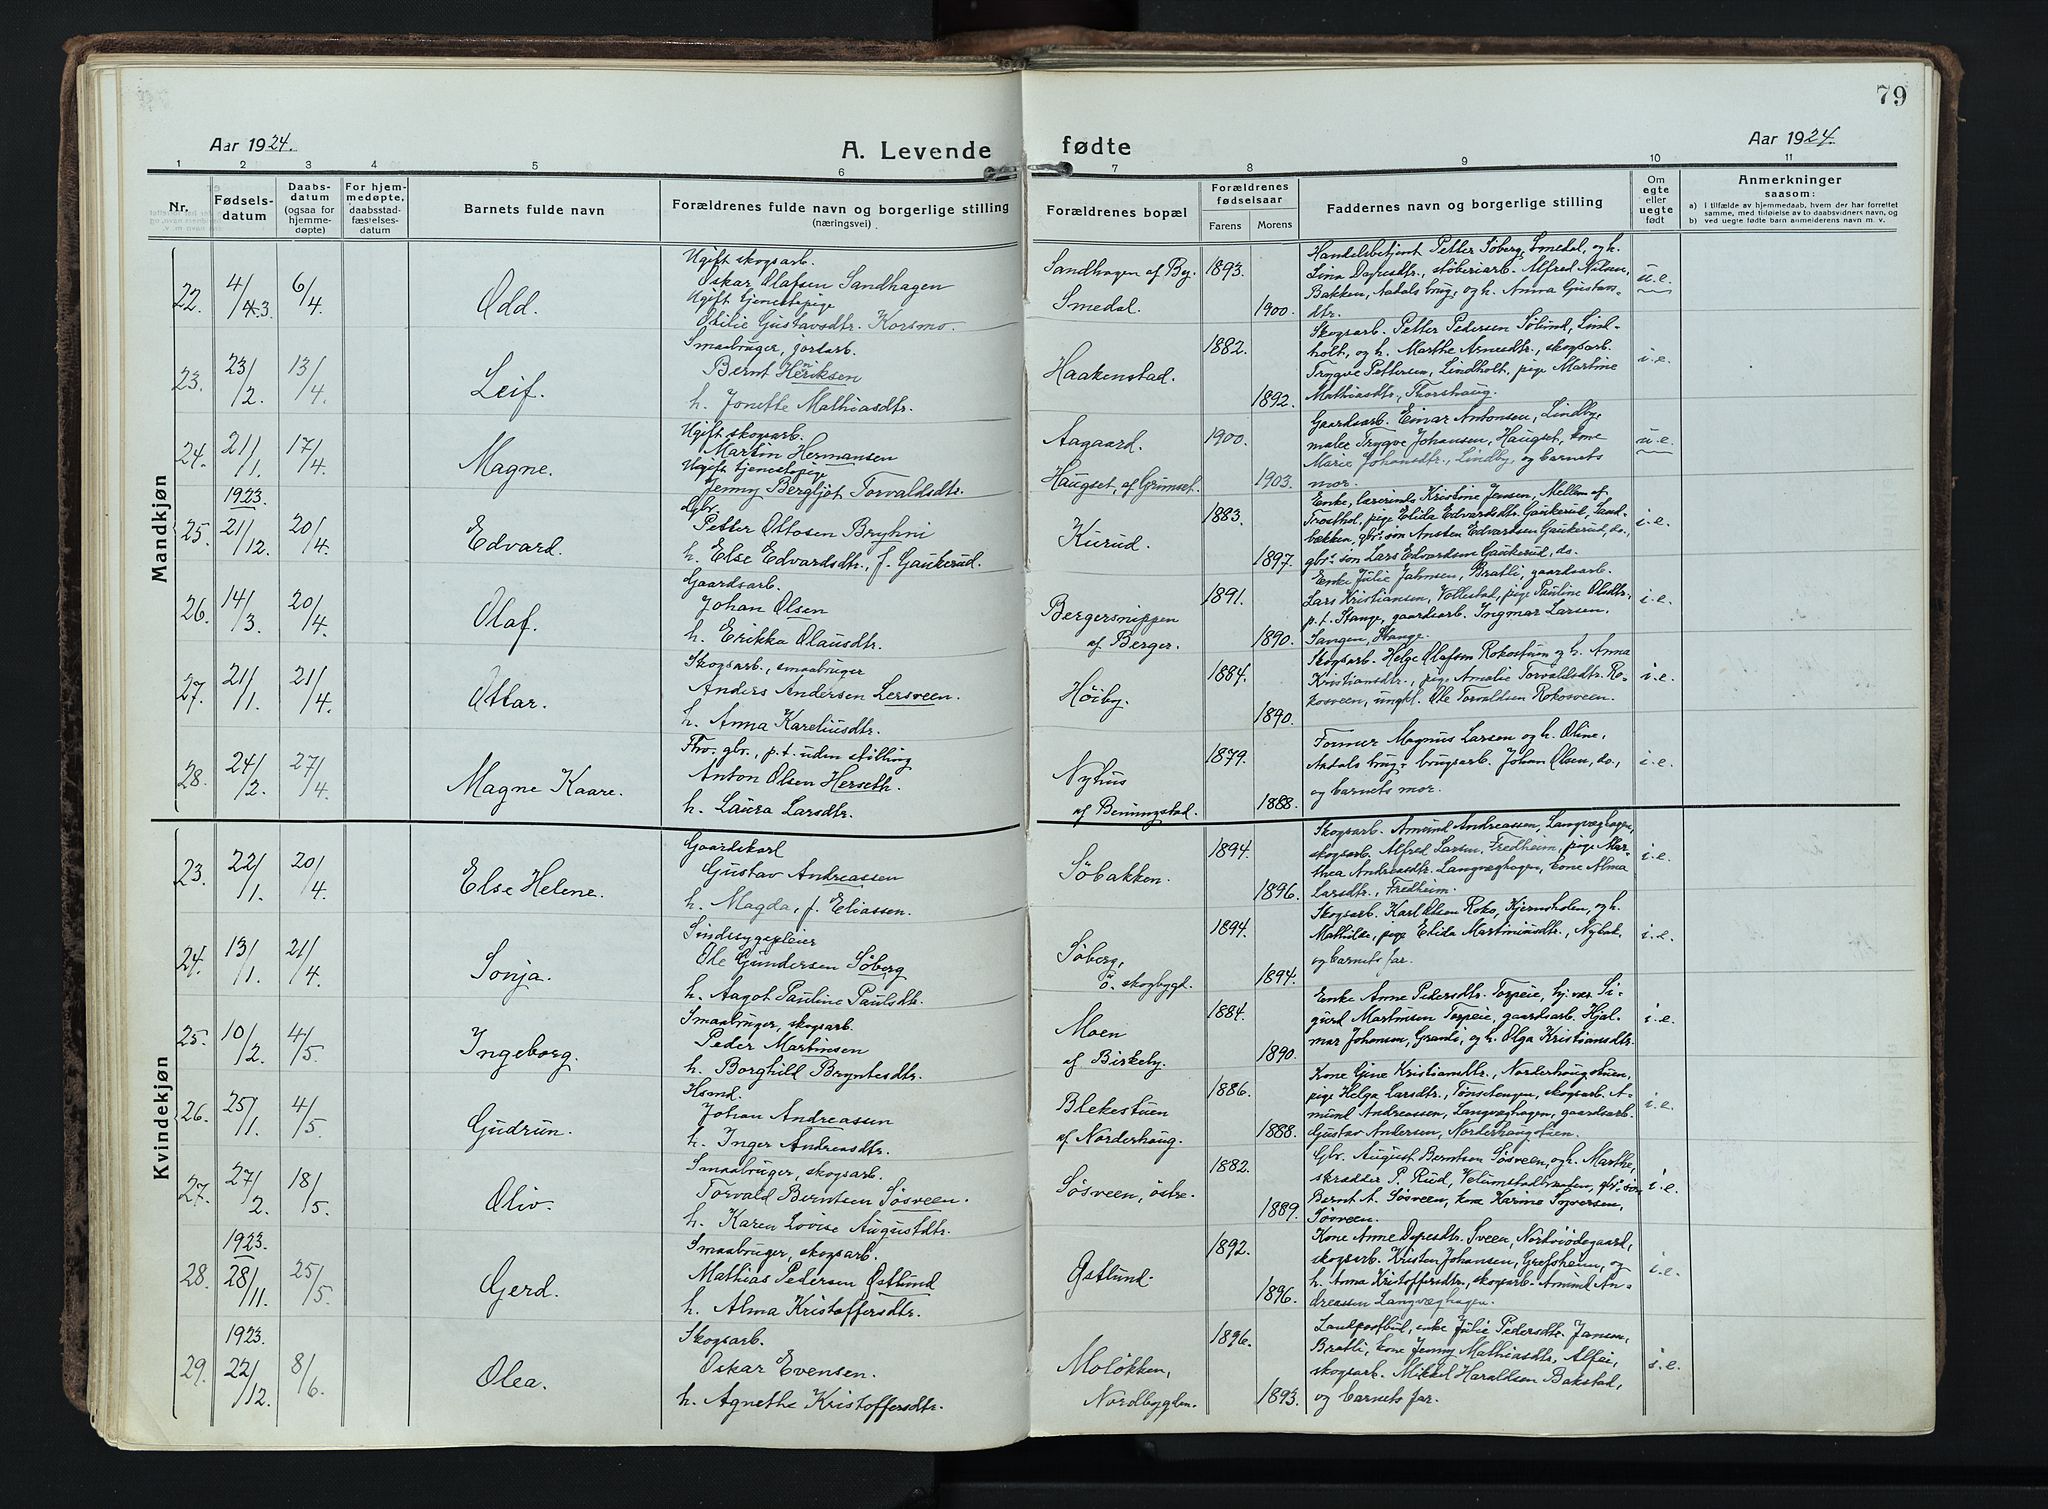 79
Aar 1924.
A. Levende fødte
Aar 1924.
1 2 3 4 5 6 7 8 9 10 11
Nr.
Fødselsdatum
Daabsdatum (ogsaa for hjemmedøpte)
For hjemmedøpte, daabsstadfæstelsesdatum
Barnets fulde navn
Forældrenes fulde navn og borgerlige stilling (næringsvei)
Forældrenes bopæl
Forældrenes fødselsaar
Farens Morens
Faddernes navn og borgerlige stilling
Om egte eller uegte født
Anmerkninger saasom:
a) I tilfælde av hjemmedaab, hvem der har forrettet samme, med tilføielse av to daabsvidners navn, og
b) ved uegte fødte barn anmelderens navn m. v.
Mandkjøn
22. 4/3 6/4 Odd.
Ugift skogsarb.
Oskar Olafsen Sandhagen
Ugift tjenestepige
Otilie Gustavsdtr. Korsmo.
Sandhagen af By.
Smedal.
1893. 1900.
Handelsbetjent Petter Søberg, Smedal, og h.
Lina Dopesdtr., støberiarb. Alfred Nilsen,
Bakken, Aadals brug, og h. Anna Gustavs-
dtr.
u.e.
23. 23/2. 13/4 Leif.
Smaabruger, jordarb.
Bernt Henriksen
h. Jonette Mathiasdtr.
Haakenstad.
1882. 1892.
Skogsarb. Petter Pedersen Sølund, Lind-
holt, og h. Marthe Arnesdtr., skogsarb.
Trygve Pettersen, Lindholt, pige Martine
Mathiasdtr., Thorshaug.
i.e.
24. 21/1. 17/4 Magne.
Ugift skogsarb.
Martin Hermansen
Ugift tjenestepige
Jenny Bergljot Torvaldsdtr.
Aagaard.
Haugset, af Grimset.
1900. 1903.
Gaardsarb. Einar Antonsen, Lindby,
maler Trygve Johansen, Haugset, kone
Marie Johansdtr., Lindby, og barnets
mor.
u.e.
25. 1923. 21/12. 20/4. Edvard.
Gbr.
Petter Ottosen Bryhni
h. Else Edvardsdtr., f. Gaukerud.
Kurud.
1883. 1897.
Enke, lærerinde Kristine Jensen, Mellem af
Frosthol, pige Elida Edvardsdtr. Gaukerud, Sand-
bækken, gbr. søn Ansten Edvardsen Gaukerud, do.,
gbr. søn Lars Edvardsen Gaukerud, do.
i.e.
26. 14/3. 20/4. Olaf.
Gaardsarb.
Johan Olsen
h. Erikka Olausdtr.
Bergersnippen
af Berger.
1891. 1890.
Enke Julie Jahnsen, Bratli, gaardsarb.
Lars Kristiansen, Vollestad, pige Pauline Olsdtr.,
p.t. Stange, gaardsarb. Ingmar Larsen,
Sangen, Stange.
i.e.
27. 21/1. 21/4. Ottar.
Skogsarb., smaabruger
Anders Andersen Lersveen.
h. Anna Kareliusdtr.
Høiby.
1884. 1890.
Skogsarb. Helge Olafsen Rokostuen og h. Anna
Kristiansdtr., pige Amalie Torvaldsdtr. Ro-
kosveen, ungk. Ole Torvaldsen Rokosveen.
i.e.
28. 24/2. 27/4. Magne Kaare.
Fhv. gbr., p.t. uden stilling
Anton Olsen Herseth.
h. Laura Larsdtr.
Nyhus
af Benningstad.
1879. 1888.
Former Magnus Larsen og h. Oline,
Aadals brug, brugsarb. Johan Olsen, do.,
og barnets mor.
i.e.
Kvindekjøn
23. 22/1. 20/4. Else Helene.
Gaardskarl
Gustav Andreassen
h. Magda, f. Eliassen.
Søbakken.
1894. 1896.
Skogsarb. Amund Andreassen, Langvæghagen,
skogsarb. Alfred Larsen, Fredheim, pige Mar-
thea Andreasdtr. Langvæghagen, kone Alma
Larsdtr., Fredheim.
i.e.
24. 13/1. 21/4. Sonja.
Sindssygepleier
Ole Gundersen Søberg
h. Aagot Pauline Paulsdtr.
Søberg,
ö. skogbygd.
1894. 1894.
Skogsarb. Karl Olsen Roko, Kjernsholen, og h.
Mathilde, pige Elida Martiniusdtr., Nybak-
og barnets far.
i.e.
25. 10/2. 4/5. Ingeborg.
Smaabruger, skogsarb.
Peder Martinsen
h. Borghild Bryntesdtr.
Moen
af Birkeby.
1884. 1890.
Enke Anne Pedersdtr. Torpeie, Si-
gurd Martinsen Torpeie, gaardsarb. Hjal-
mar Johansen, Granli, og h. Olga Kristiansdtr.
i.e.
26. 25/1. 4/5. Gudrun.
Hsmd.
Johan Andreassen
h. Inger Andreasdtr.
Blekestuen
af Norderhaug.
1886. 1888.
Kone Gine Kristiansdtr., Norderhaugstuen,
pige Helga Larsdtr., Tønsetengen, skogsarb. A-
mund Andreassen, Langvæghagen, gaardsarb.
Gustav Andersen, Norderhaugstuen.
i.e.
27. 27/2. 18/5. Oliv.
Smaabruger, skogsarb.
Torvald Berntsen Søsveen.
h. Karen Lovise Augustdtr.
Søsveen, östre.
1882. 1889.
Gbr. August Berntsen Søsveen, og h. Marthe,
skrædder P. Rud, gbr. søn
Bernt A. Søsveen, kone Karine Syversen,
Søsveen.
i.e.
28. 1923. 28/11. 25/5. Gerd.
Smaabruger, skogsarb.
Mathias Pedersen Østlund
h. Alma Kristoffersdtr.
Østlund.
1892. 1896.
Kone Anne Dopesdtr. Sveen,
skogsarb. Kristen Johansen, Grefsheim, og
h. Anna Kristoffersdtr., skogsarb. Amund An-
dreassen Langvæghagen.
i.e.
29. 1923. 22/12. 8/6. Olea.
Skogsarb.
Oskar Evensen.
h. Agnethe Kristoffersdtr.
Moløkken,
Nordbygden.
1896. 1893.
Landpostbud, enke Julie Pedersdtr. Jansen,
Bratli, kone Jenny Mathiasdtr., Alfei,
skogsarb. Mikkel Haraldsen Bakstad,
og barnets far.
i.e.